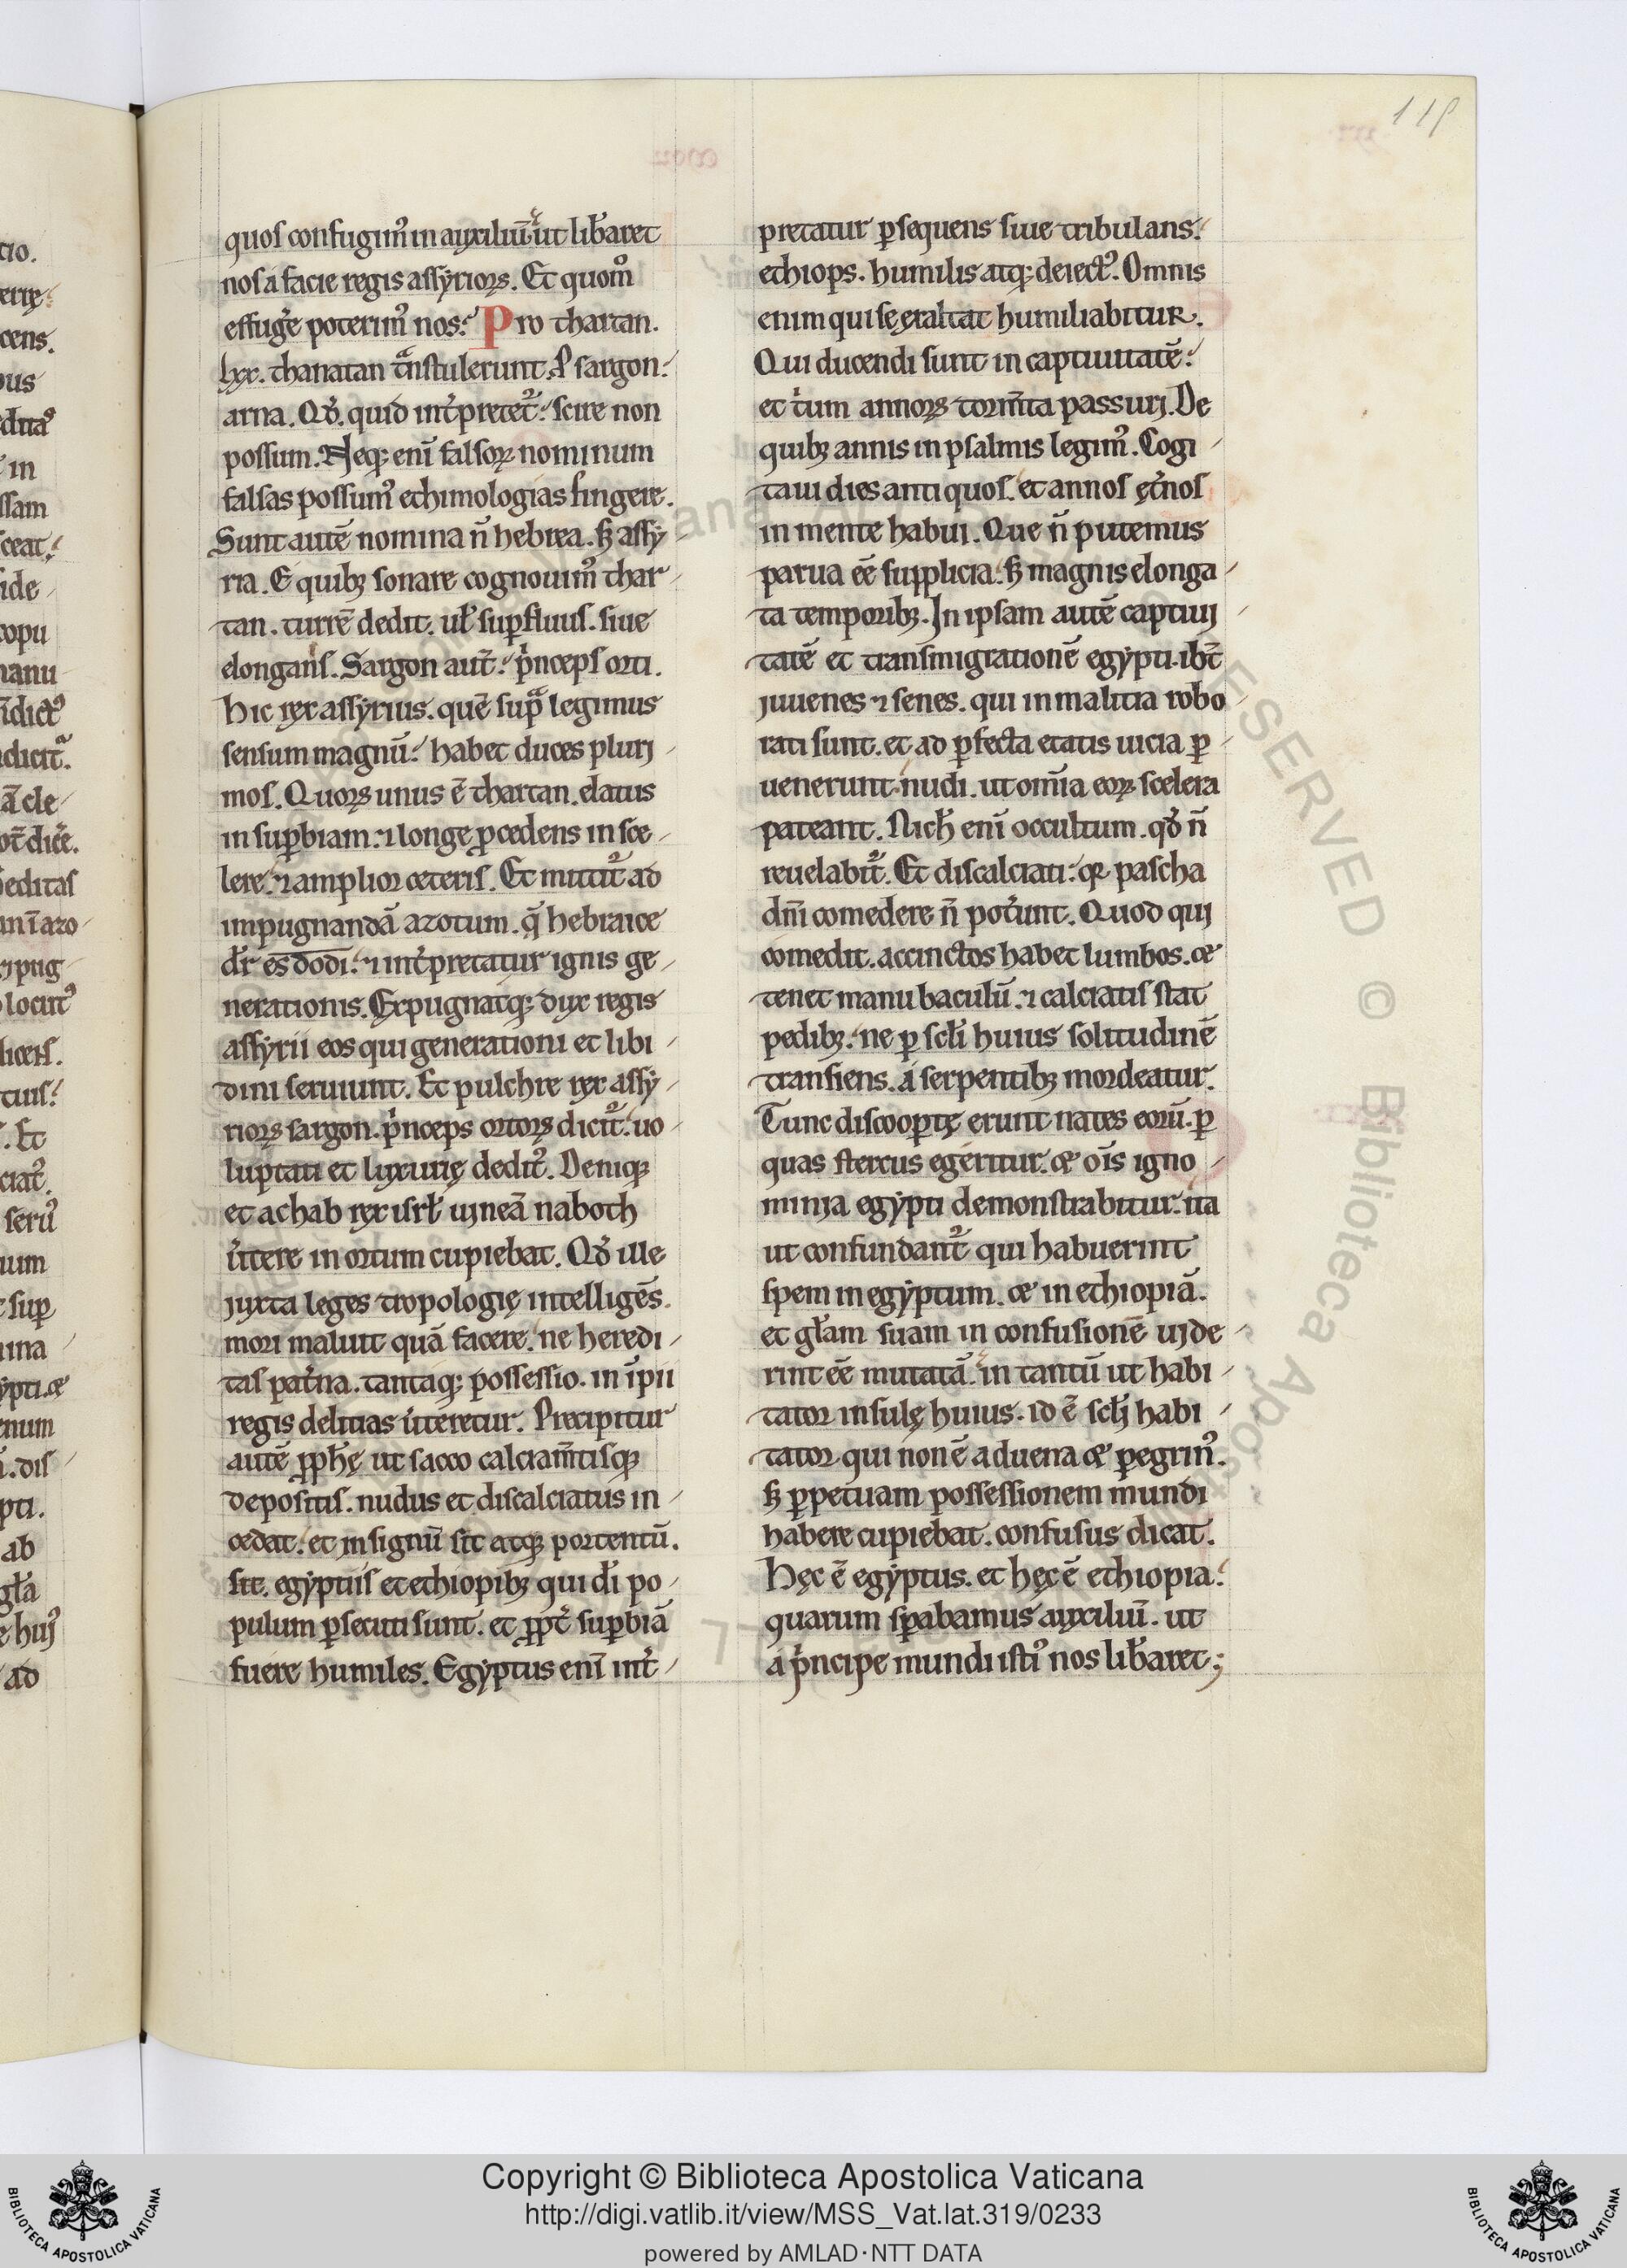 115
quos confugim᷒ in auxiliū ut lib̄aret
nos a facie regis assyrioꝝ. Et quom̊
effug̓e poterim᷒ nos. Pro thartan.
lxx. thanatan t̊nstulerunt. ꝑ sargon.
arna. Qđ. quid int̓pretet᷑. scire non
possum. Neq; enī falsoꝝ nominum
falsas possum᷒ ethimologias fingere.
Sunt autē nomina n̄ hebrea. ꝫ assy
ria. E quibꝫ sonare cognouim᷒ thar
tan. turrē dedit. uł supfluus. siue
elongans. Sargon aut̄. p̓nceps orti.
Hic rex assyrius. quē sup̊ legimus
sensum magnū. habet duces pluri
mos. Quoꝝ unus ē thartan. elatus
in suꝑbiam. ⁊ longe ꝓcedens in sce
lere. ⁊ amplior ceteris. Et mittit᷑ ad
impugnandā azotum. q̄ hebraice
dr̄ esdodi. ⁊ int̓pretatur ignis ge
nerationis. Expugnatq; dux regis
assyrii eos qui generationi et libi
dini seruiunt. Et pulchre rex assy
rioꝝ sargon. p̓nceps ortoꝝ dicit᷑. uo
luptati et luxurię dedit᷒. Deniqꝫ
et achab rex isrł uineā naboth
ū̓tere in ortum cupiebat. Qđ ille
iuxta leges tropologię intelligēs.
mori maluit quā facere. ne heredi
tas pat̓na. tantaq; possessio. in īpii
regis delitias ū̓teretur. Precipitur
autē ꝓphę ut sacco calciam̄tisqꝫ
depositis. nudus et discalciatus in
cedat. et in signū sit atqꝫ portentū.
sit. egyptiis et ethiopibꝫ qui dī po
pulum ꝑsecuti sunt. et ꝓpt̓ suꝑbiā
fuere humiles. Egyptus enī int̓
pretatur ꝑsequens siue tribulans.
ethiops. humilis atq; deiect᷒. Omnis
enim qui se exaltat humiliabitur.
Qui ducendi sunt in captiuitatē.
et t̓um annoꝝ torm̄ta passuri. De
quibꝫ annis in psalmis legim᷒. Cogi
taui dies antiquos. et annos ęt̓nos
in mente habui. Que n̄ putemus
parua eē supplicia. ꝫ magnis elonga
ta temporibꝫ. In ipsam autē captiui
tatē et transmigrationē egypti. ibt̄
iuuenes ⁊ senes. qui in malitia robo
rati sunt. et ad ꝑfecta etatis uicia ꝑ
uenerunt. nudi. ut om̄ia eoꝝ scelera
pateant. Nich̄ enī occultum. qđ n̄
reuelabit᷑. Et discalciati. qꝛ pascha
dn̄i comedere n̄ pot̓unt. Quod qui
comedit. accinctos habet lumbos. &
tenet manu baculū. ⁊ calciatis stat
pedibꝫ. ne ꝑ scłi huius solitudinē
transiens. a serpentibꝫ mordeatur.
Tunc discooꝑtę erunt nates eorū. ꝑ
quas stercus egeritur. & oīs igno
minia egypti demonstrabitur. ita
ut confundant᷑ qui habuerint
spem in egyptum. & in ethiopiā.
et gl̄am suam in confusionē uide
rint eē mutatā. in tantū ut habi
tator insulę huius. id ē scłi habi
tator qui non ē aduena & ꝑegrin᷒.
ꝫ ꝑpetuam possessionem mundi
habere cupiebat. confusus dicat.
Hęc ē egyptus. et hęc ē ethiopia.
quarum sꝑabamus auxiliū. ut
a p̓ncipe mundi isti᷒ nos lib̄aret;
Copyright © Biblioteca Apostolica Vaticana
http://digi.vatlib.it/view/MSS_Vat.lat.319/0233
powered by AMLAD·NTT DATA
BIBLIOTECA APOSTOLICA VATICANA
BIBLIOTECA APOSTOLICA VATICANA